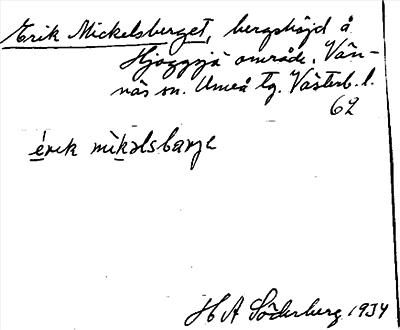 Erik Mickelsberget, bergshöjd å
Hjoggsjö område. Vän-
näs sn. Umeå tg. Västerb. l.
62
érik mìkəlsbarje
H A Söderberg 1934